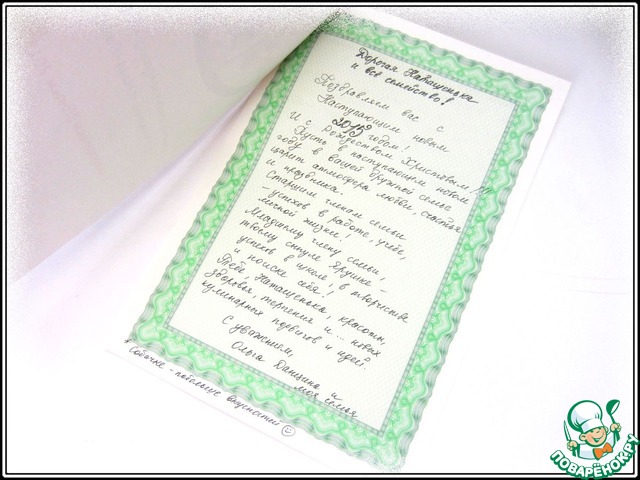 Дорогая Наташенька
и всё семейство!
Поздравляем вас с
Наступающим новым
2015 годом!
И с Рождеством Христовым!!!
Пусть в наступающем новом
году в вашей дружной семье
царит атмосфера любви, счастья
и праздника.
Старшим членам семьи
- успехов в работе, учёбе,
личной жизни!
Младшему члену семьи,
твоему сынуле Ярушке -
успехов в школе, в творчестве
и поиске себя!
Тебе, Наташенька, красоты,
здоровья, терпения и... новых
кулинарных подвигов и идей!
С уважением,
Ольга и
моя семья
* Собачке - побольше вкусностей ☺
ПОВАРЁНОК.РУ